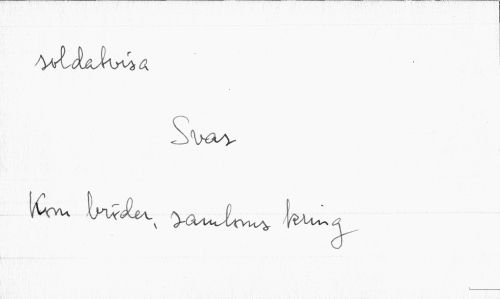 soldatvisa
Svar
Kom bröder, samloms kring